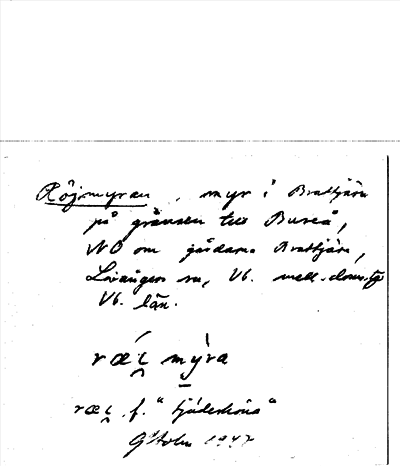 Röjmyran, myr i Brattjärn
på gränsen till Bureå,
NO om gårdarna Brattjärn,
Lövångers sn, Vb. mell. domstg
Vb. län.
ræi̯ my̱ra
ræi̯ f. "tjäderhöna"
G Holm 1947